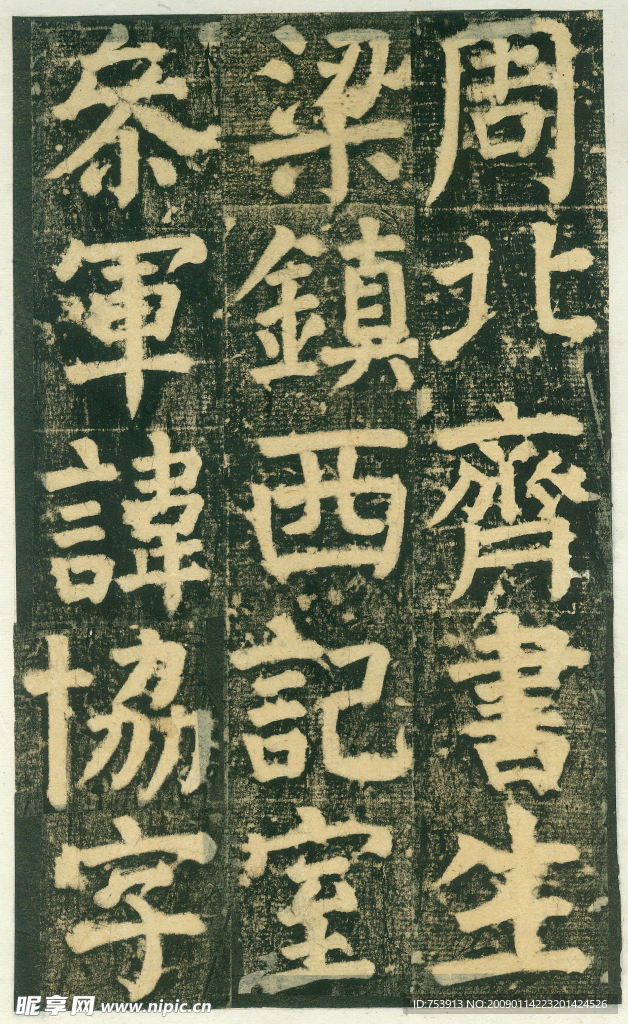 周北齊書生
梁鎮西記室
叅軍諱協字
昵享网 www.nipic.cn
ID:753913 NO:20090114223201424526